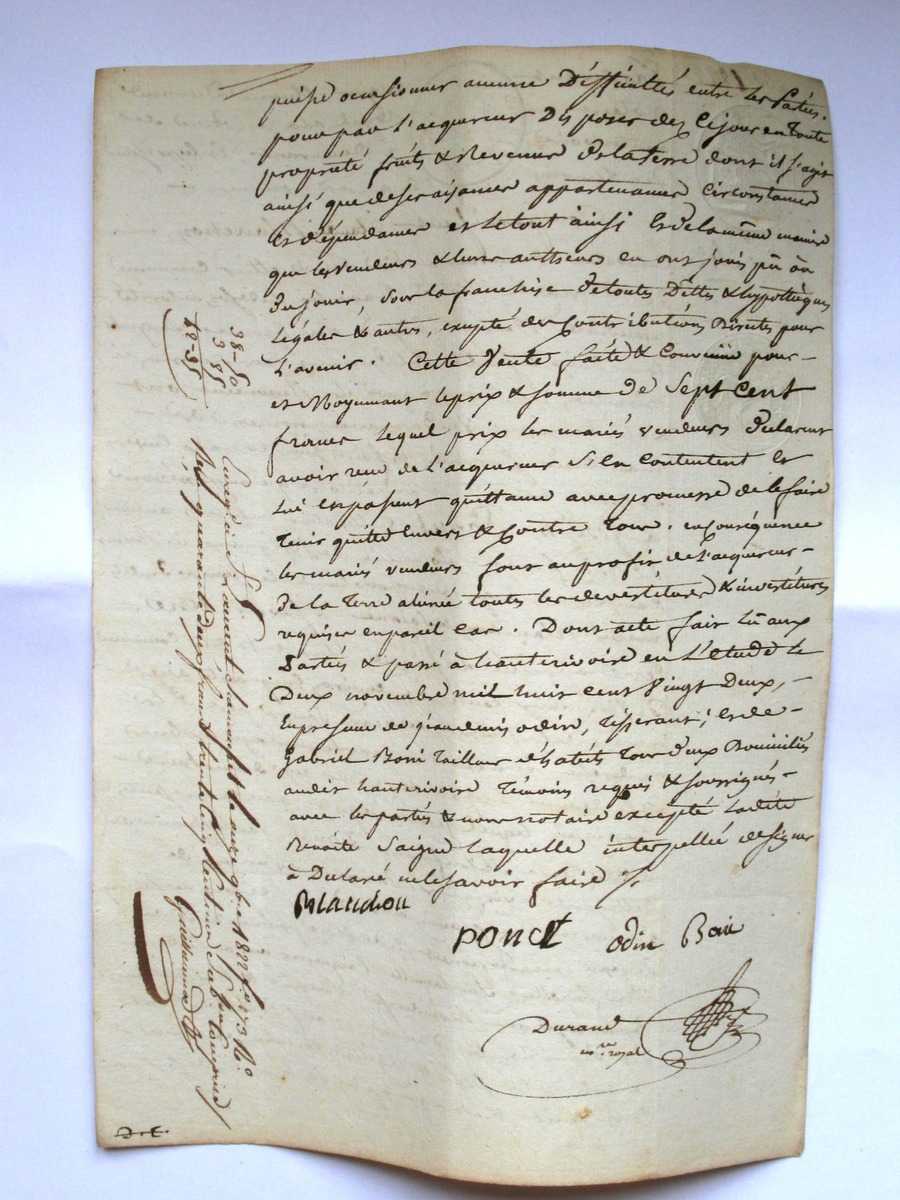 puisse occasionner aucune Difficultés entre les Parties.
pour par L'acquereur Disposer dez Cejour en toute
propriété fruits & Revenus de la terre dont il s'agit
ainsi que de ses aisances appartenances Circonstances
et dépendances et le tout ainsi & de la même maniere
que les vendeurs & leurs autheurs en ont joui pû ou
du jouir, sous la franchise de toutes Dettes & hypothèques
Légales & autres, exepté des Contributions Directes pour
L'avenir. Cette Vente faite & Convenue pour-
et Moyennant le prix & somme de Sept Cent
francs lequel prix les mariés vendeurs Declarent
avoir reçu de L'acquereur S'en Contentent et
lui en passent quittance avec promesse de le faire
Tenir quitte Envers & Contre Tous. en Conséquence
les mariés vendeurs font au profit de L'acquereur-
de la Terre alienée toutes les devestitures & investitures
requises en pareil Cas. Dont acte fait Lû aux
Parties & passé à hauterivoire en L'étude le
Deux novembre mil huit Cent Vingt Deux,-
En présence de jean denis odin, Tisserant; et de-
Gabriel Boni Tailleur d'habits Tous deux Domiciliés
audit hauterivoire Témoins requis & soussignés-
avec les parties & nous notaire excepté Ladite
Benoite Saigne laquelle interpellée de signer
à Declaré ne le savoir faire
Blanchon
PONCET odin Boni
Durand
no.re royal
38-50
3-85
42-35
Enregé. à St. Laurent de Chamousset le onze 9bre 1822 fo. 173 Ro.
Reçu quarante deux francs trente cinq Centimes Subvon. Comprise